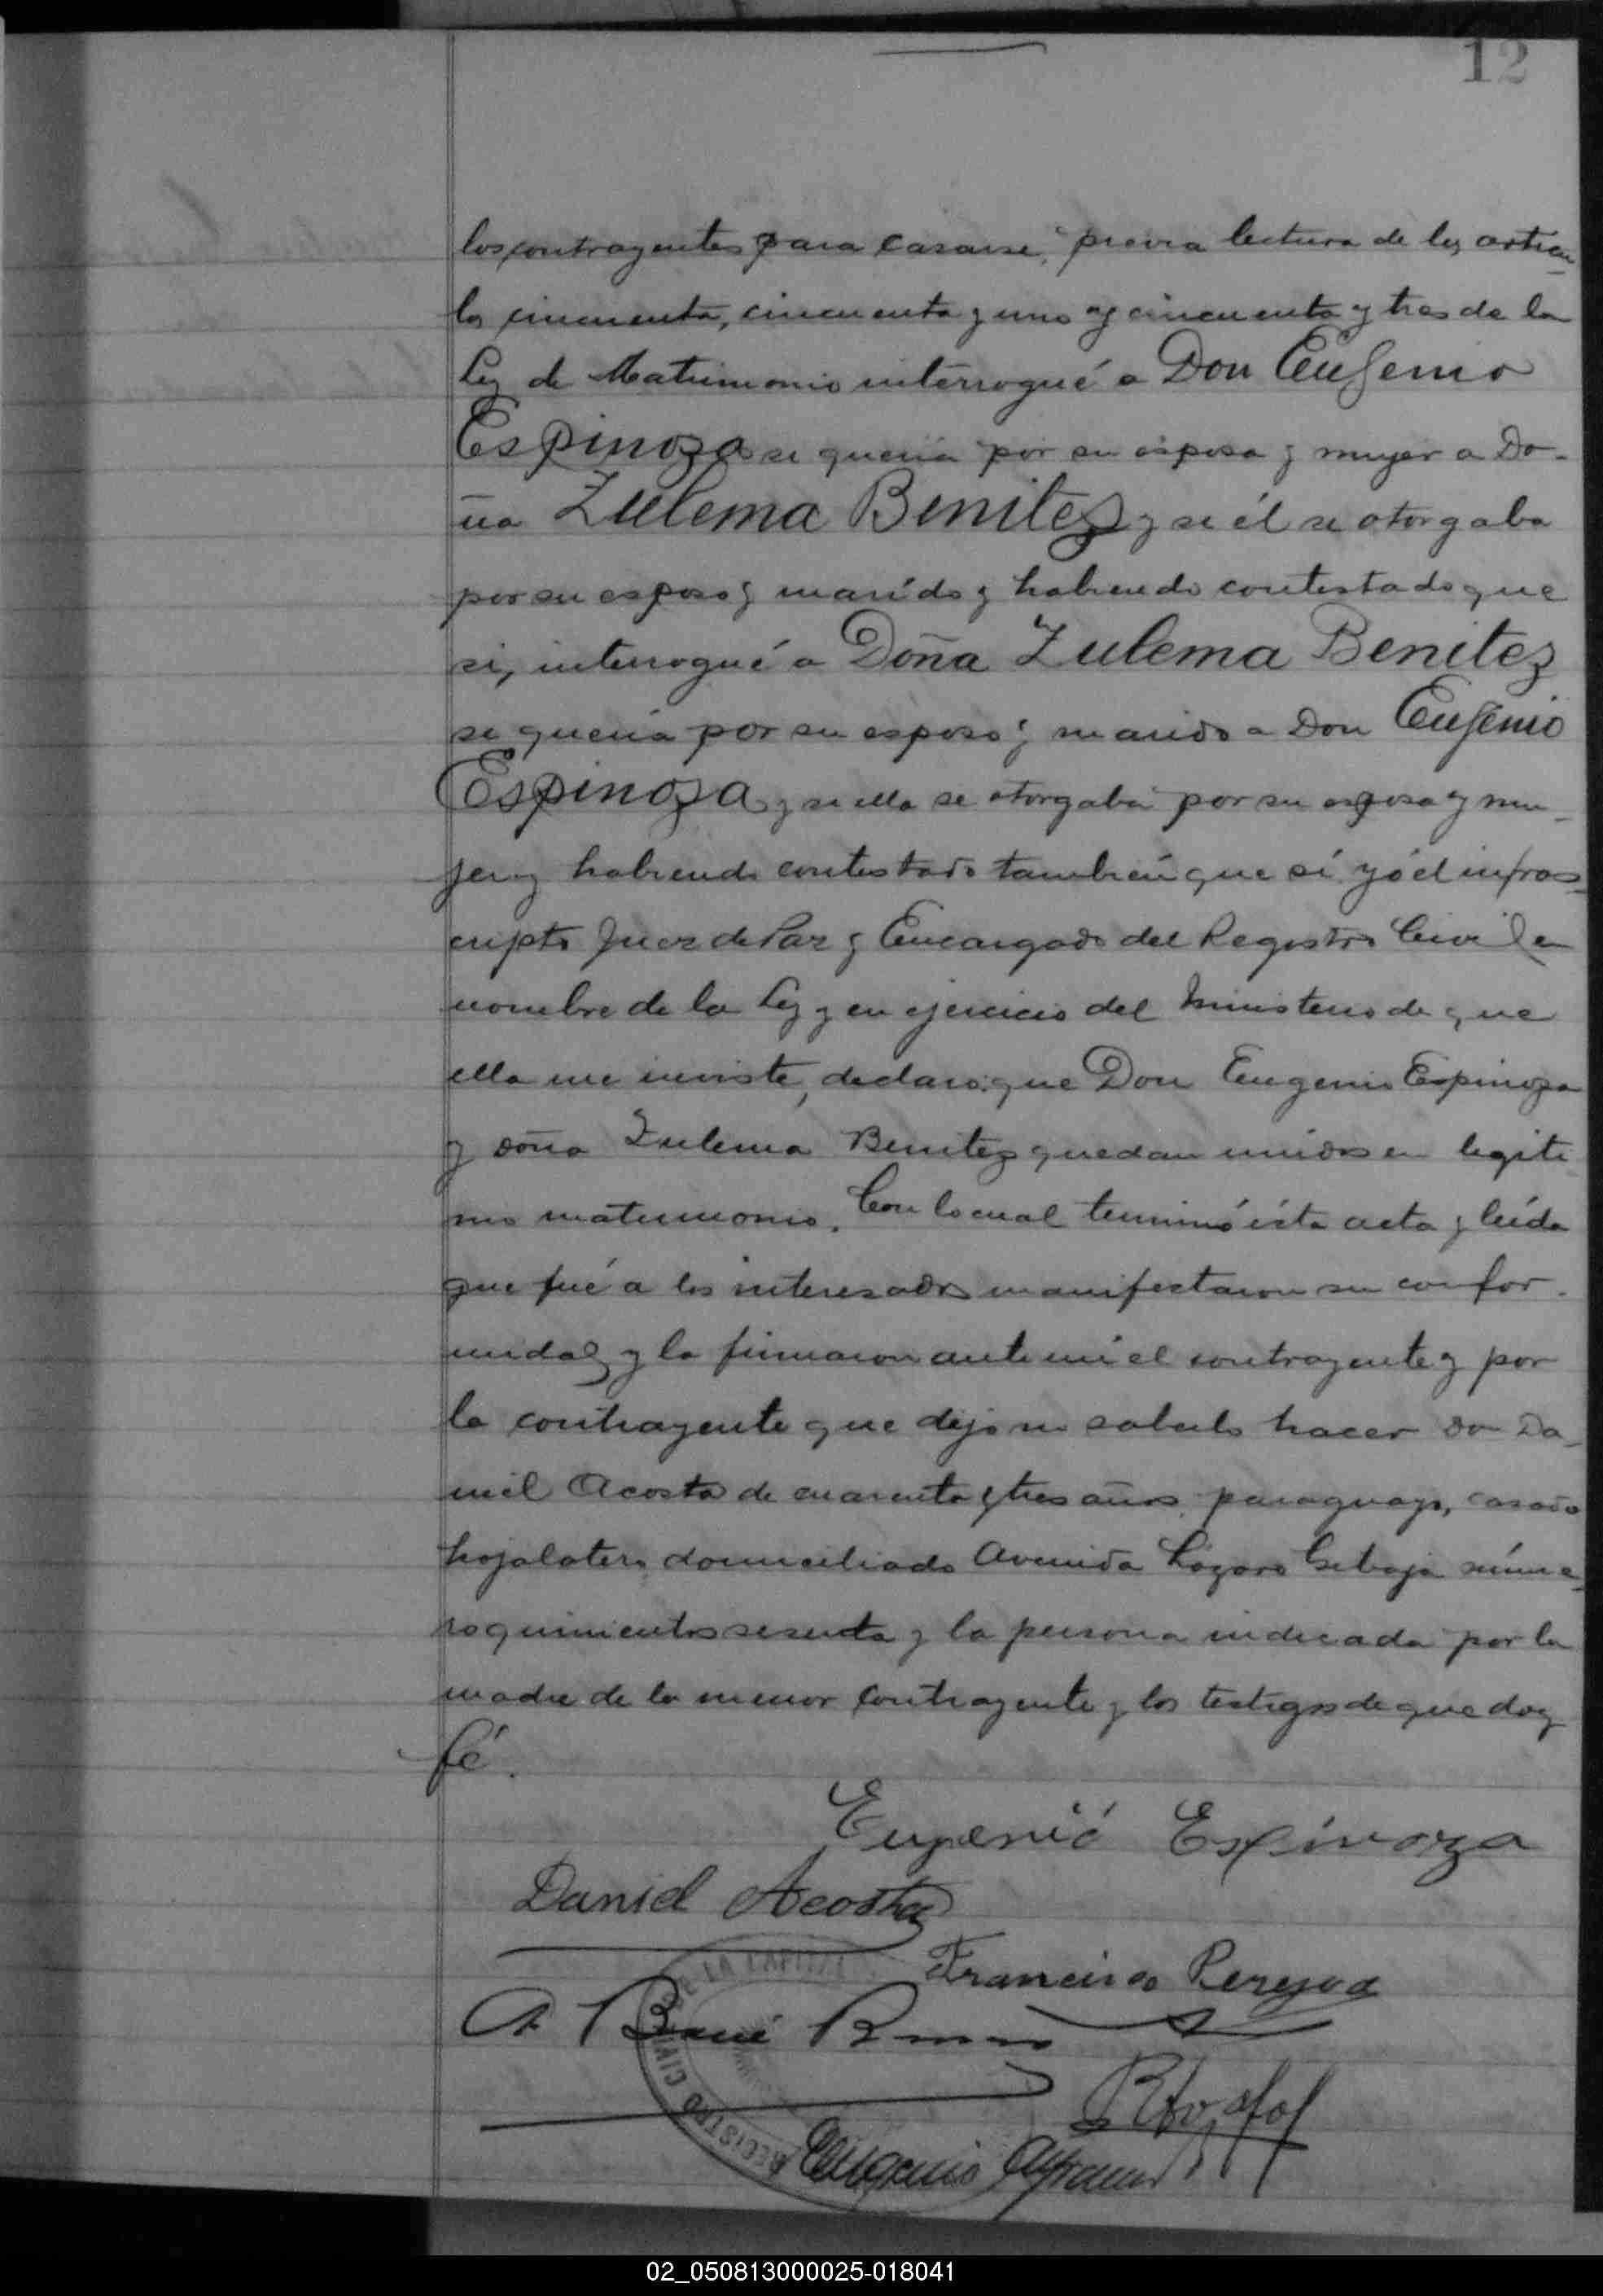 12
los contrayentes para casarse, previa lectura de los artícu
los cincuenta, cincuenta y uno y cincuenta y tres de la
Ley de Matrimonio interrogué a Don Eugenio
Espinoza si quería por su esposa y mujer a Do-
ña Zulema Benitez y si él se otorgaba
por su esposo y marido y habiendo contestado que
si, interrogué a Doña Zulema Benitez
si quería por su esposo y marido a Don Eugenio
Espinoza y si ella se otorgaba por su esposa y mu-
jer y habiendo contestado también que sí yó el infras-
cripto Juez de Paz y Encargado del Registro Civil en
nombre de la Ley y en ejercicio del Ministerio de que
ella me inviste, declaro: que Don Eugenio Espinoza
y doña Zulema Benitez quedan unidos en legíti
mo matrimonio. Con lo cual terminó ésta acta y leída
que fué a los interesados manifestaron su confor-
midad y la firmaron ante mí el contrayente y por
la contrayente que dijo no saberlo hacer don Da-
niel Acosta de cuarenta y tres años, paraguayo, casado
hojalatero domiciliado Avenida Lázaro Gibaja núme-
ro quinientos sesenta y la persona indicada por la
madre de la menor contrayente y los testigos de que doy
fé.
Eugenió Espinoza
Daniel Acosta
Francisco Pereyra
REGISTRO CIVIL DE LA CAPITAL
Eugenio
02_050813000025-018041